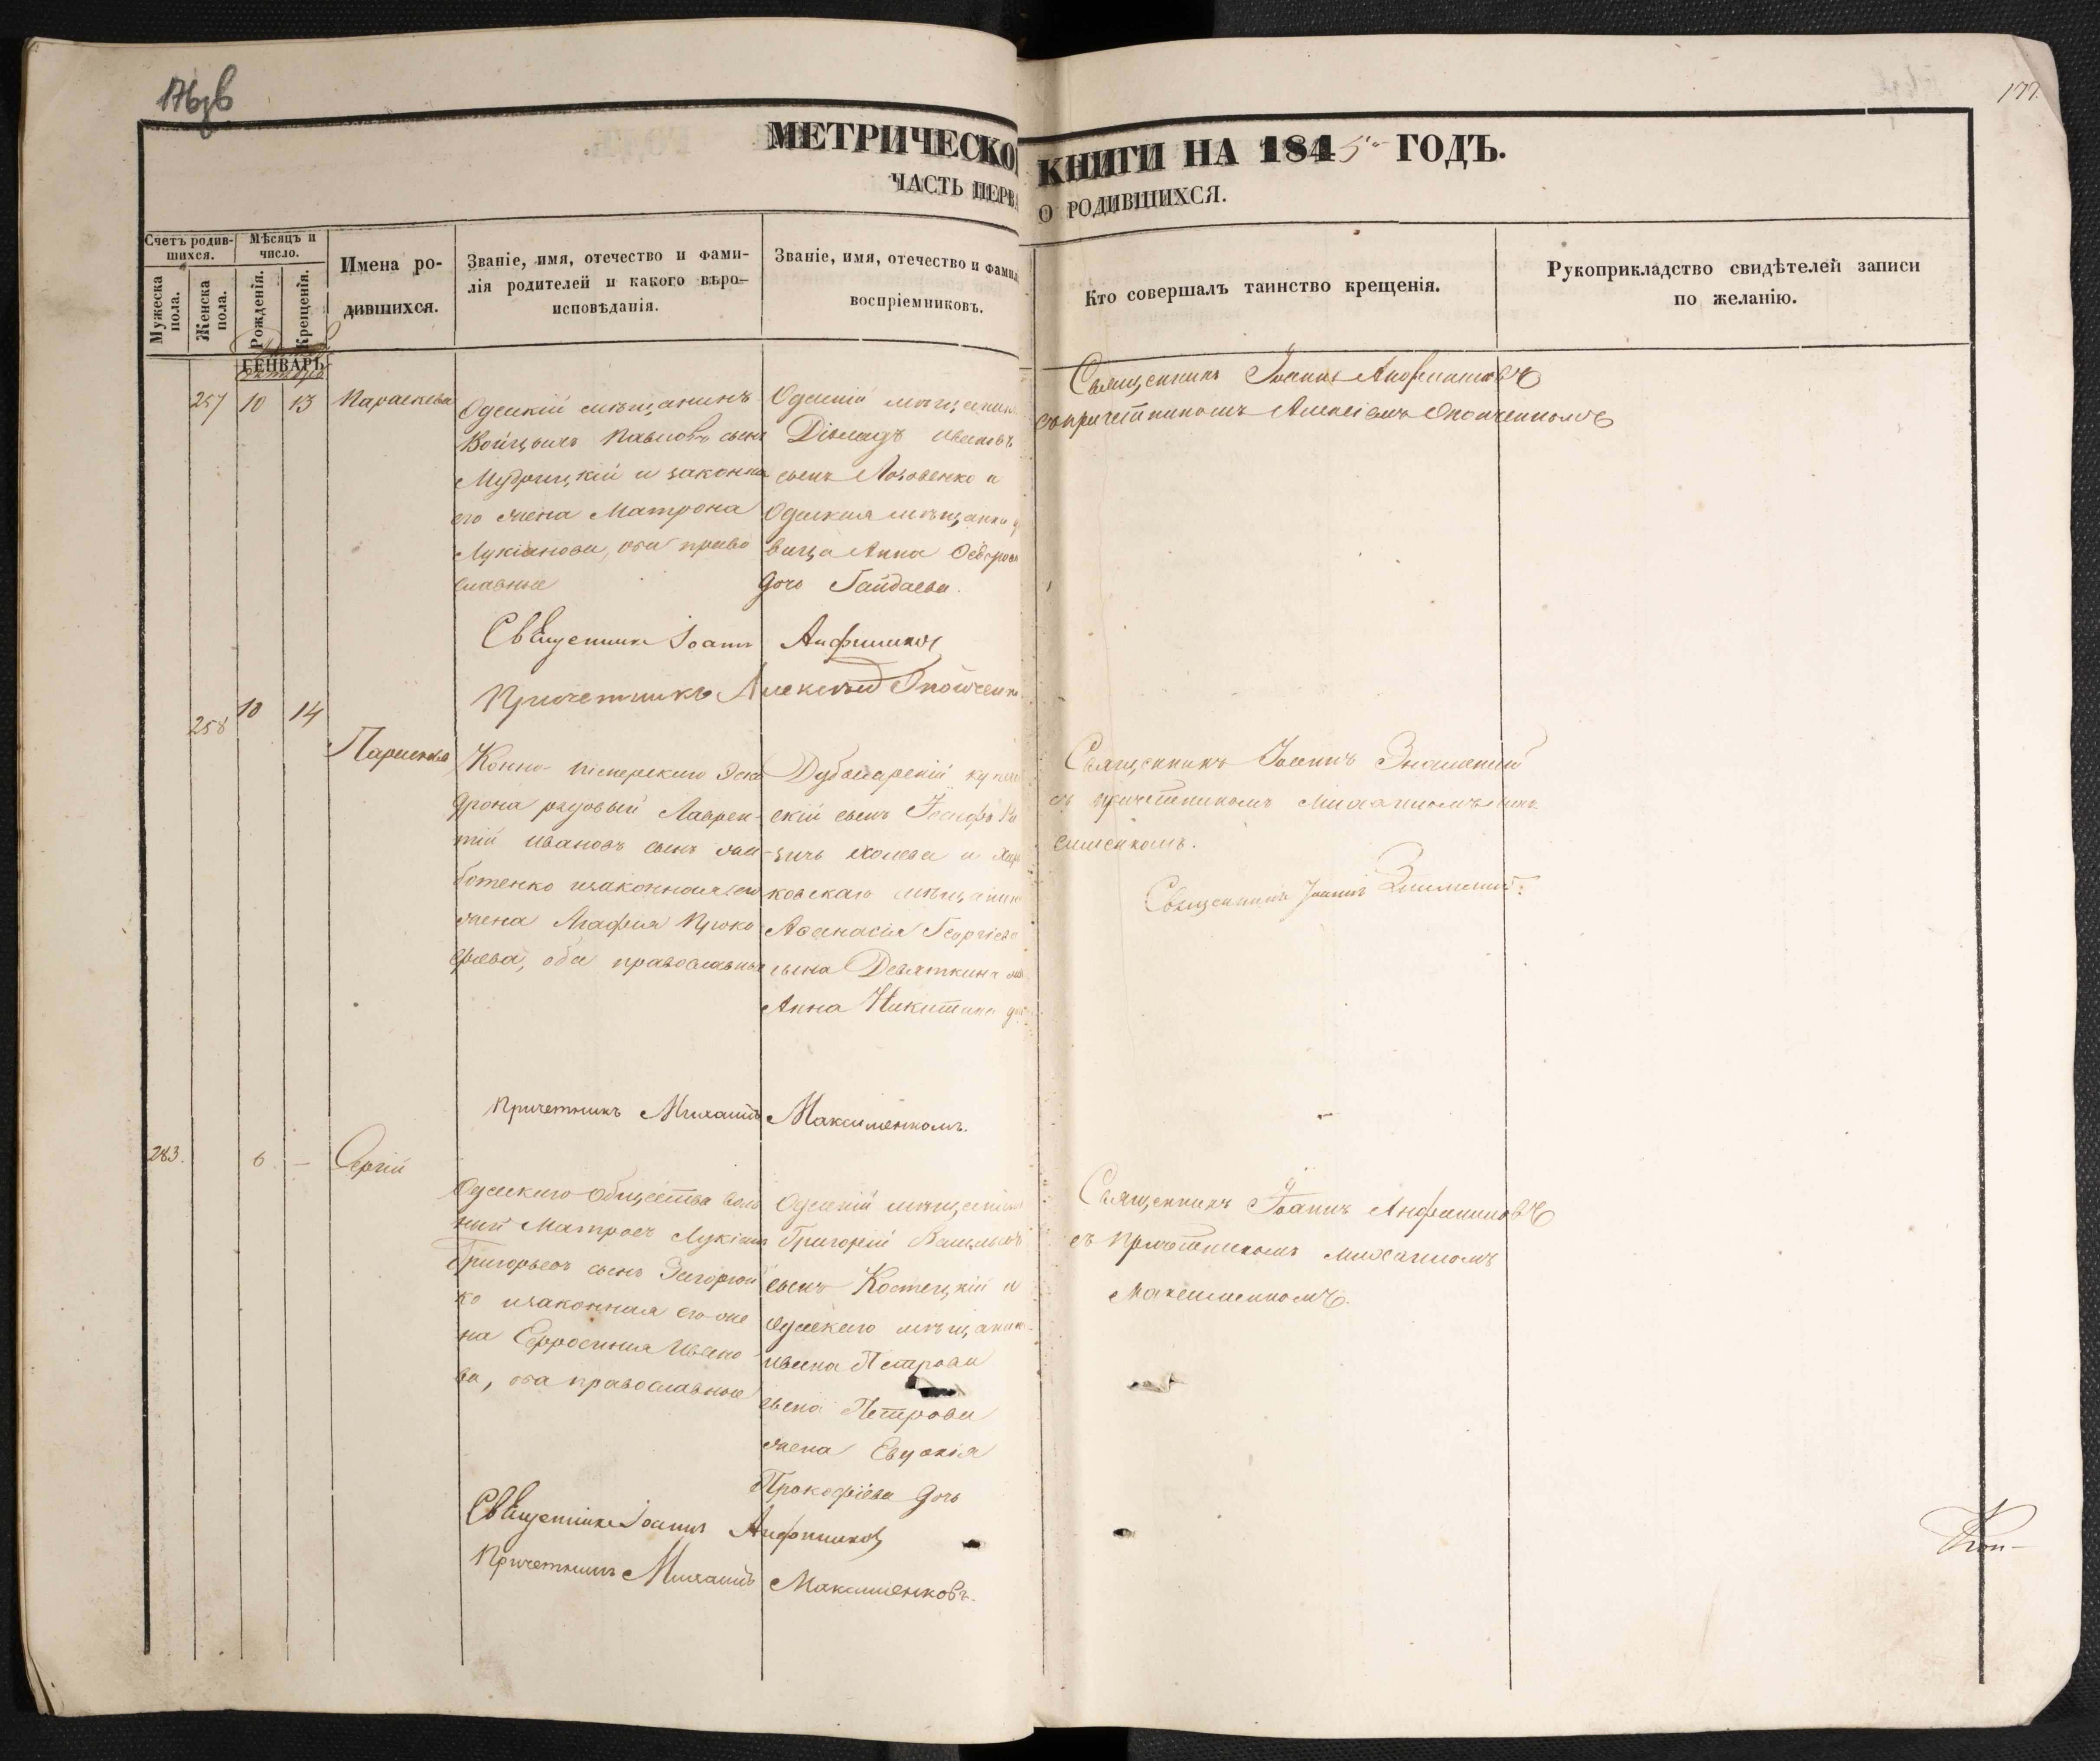 176об
177.
МЕТРИЧЕСКО
КНИГИ НА 1845 ГОДЪ.
ЧАСТЬ ПЕРВА
О РОДИВШИХСЯ.
Счетъ родив-
шихся.
Мужеска
пола.
Женска
пола.
Мѣсяцъ и
число.
Рожденія.
Крещенія.
Имена ро-
дившихся.
Званіе, имя, отечество и фами-
лія родителей и какого вѣро-
исповѣданія.
Званіе, имя, отечество и фами
воспріемниковъ.
Кто совершалъ таинство крещенія.
Рукоприкладство свидѣтелей записи
по желанію.
ГЕНВАРЬ
257 10 13 Параскева
Одескій мѣщанинъ
Павловъ сынъ
Мудрицкій и законна
его жена Матрона
Лукіанова, оба право
славные
Одескій мѣщанинъ
Ивановъ
сынъ Лозовенко и
Одеская мѣщанка д
вица Анна
дочь Гайдаева.
Священникъ Іоаннъ
съ причетникомъ Алексіемъ
Священникъ Іоаннъ Анфимовъ
Причетникъ Алексѣй
258 10 14
Параскева
Конно-Піонерскаго Эска
дрона рядовый Лаврен-
тій Ивановъ сынъ
изаконная его
жена Агафія Проко
фіева, оба православные
Дубосарскій купе
скій сынъ Іосифъ
и Хар
ковскаго мѣщанина
Аѳанасія Георгіева
сына Девяткина
Анна Никитина до
Священникъ Іоаннъ Знаменскій
съ причетникомъ Михаиломъ Мак
сименкомъ.
Священникъ Іоаннъ Знаменскій.
Причетникъ Михаилъ Максименкомъ.
283. 6. — Сергій
Одескаго общества воль
ный Матросъ Лукіанъ
Григорьевъ сынъ
ко изаконная его же
на Ефросинія Ивано
ва, оба православные
Одескій мѣщанинъ
Григорій Васильевъ
сынъ Костецкій и
Одескаго мѣщанина
Ивана Петрова
сына Петрова
жена Евдокія
Прокофіева дочь
Священникъ Іоаннъ
съ Причетникомъ Михаиломъ
Максименкомъ.
Священникъ Іоаннъ Анфимовъ
Причетникъ Михаилъ Максименковъ.